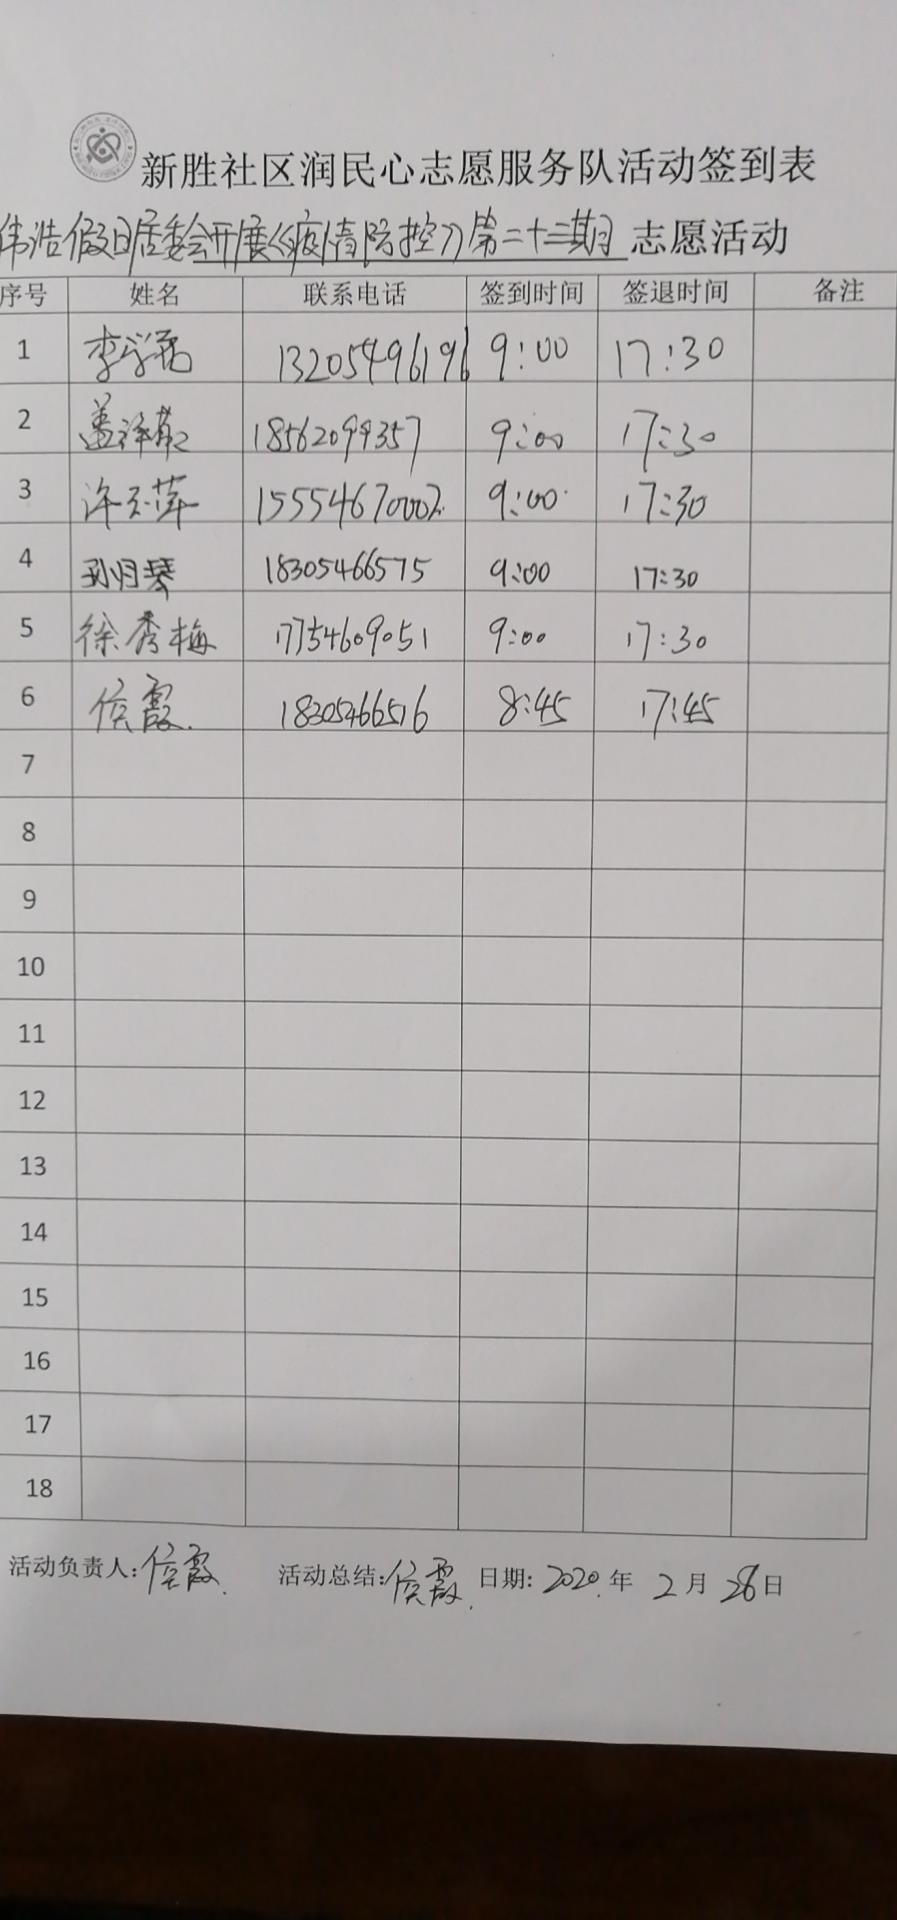 新胜社区润民心志愿服务队活动签到表
伟浩假日居委会开展《疫情防控》第二十三期 志愿活动
序号 姓名 联系电话 签到时间 签退时间 备注
1 李 13205496196 9:00 17:30
2 盖泽 18562099357 9:00 17:30
3 许玉萍 15554670002 9:00 17:30
4 孙月琴 18305466575 9:00 17:30
5 徐秀梅 17754609051 9:00 17:30
6 侯霞 18305466516 8:45 17:45
7
8
9
10
11
12
13
14
15
16
17
18
活动负责人:侯霞 活动总结:侯霞 日期: 2020 年 2 月 26 日